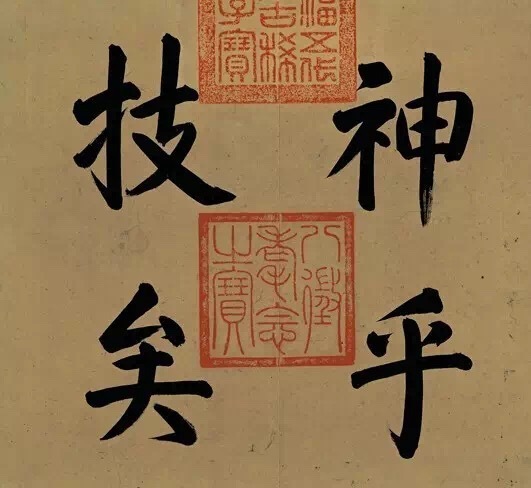 神乎
福五代
古稀
子寶
八徵
耄念
之寶
技矣